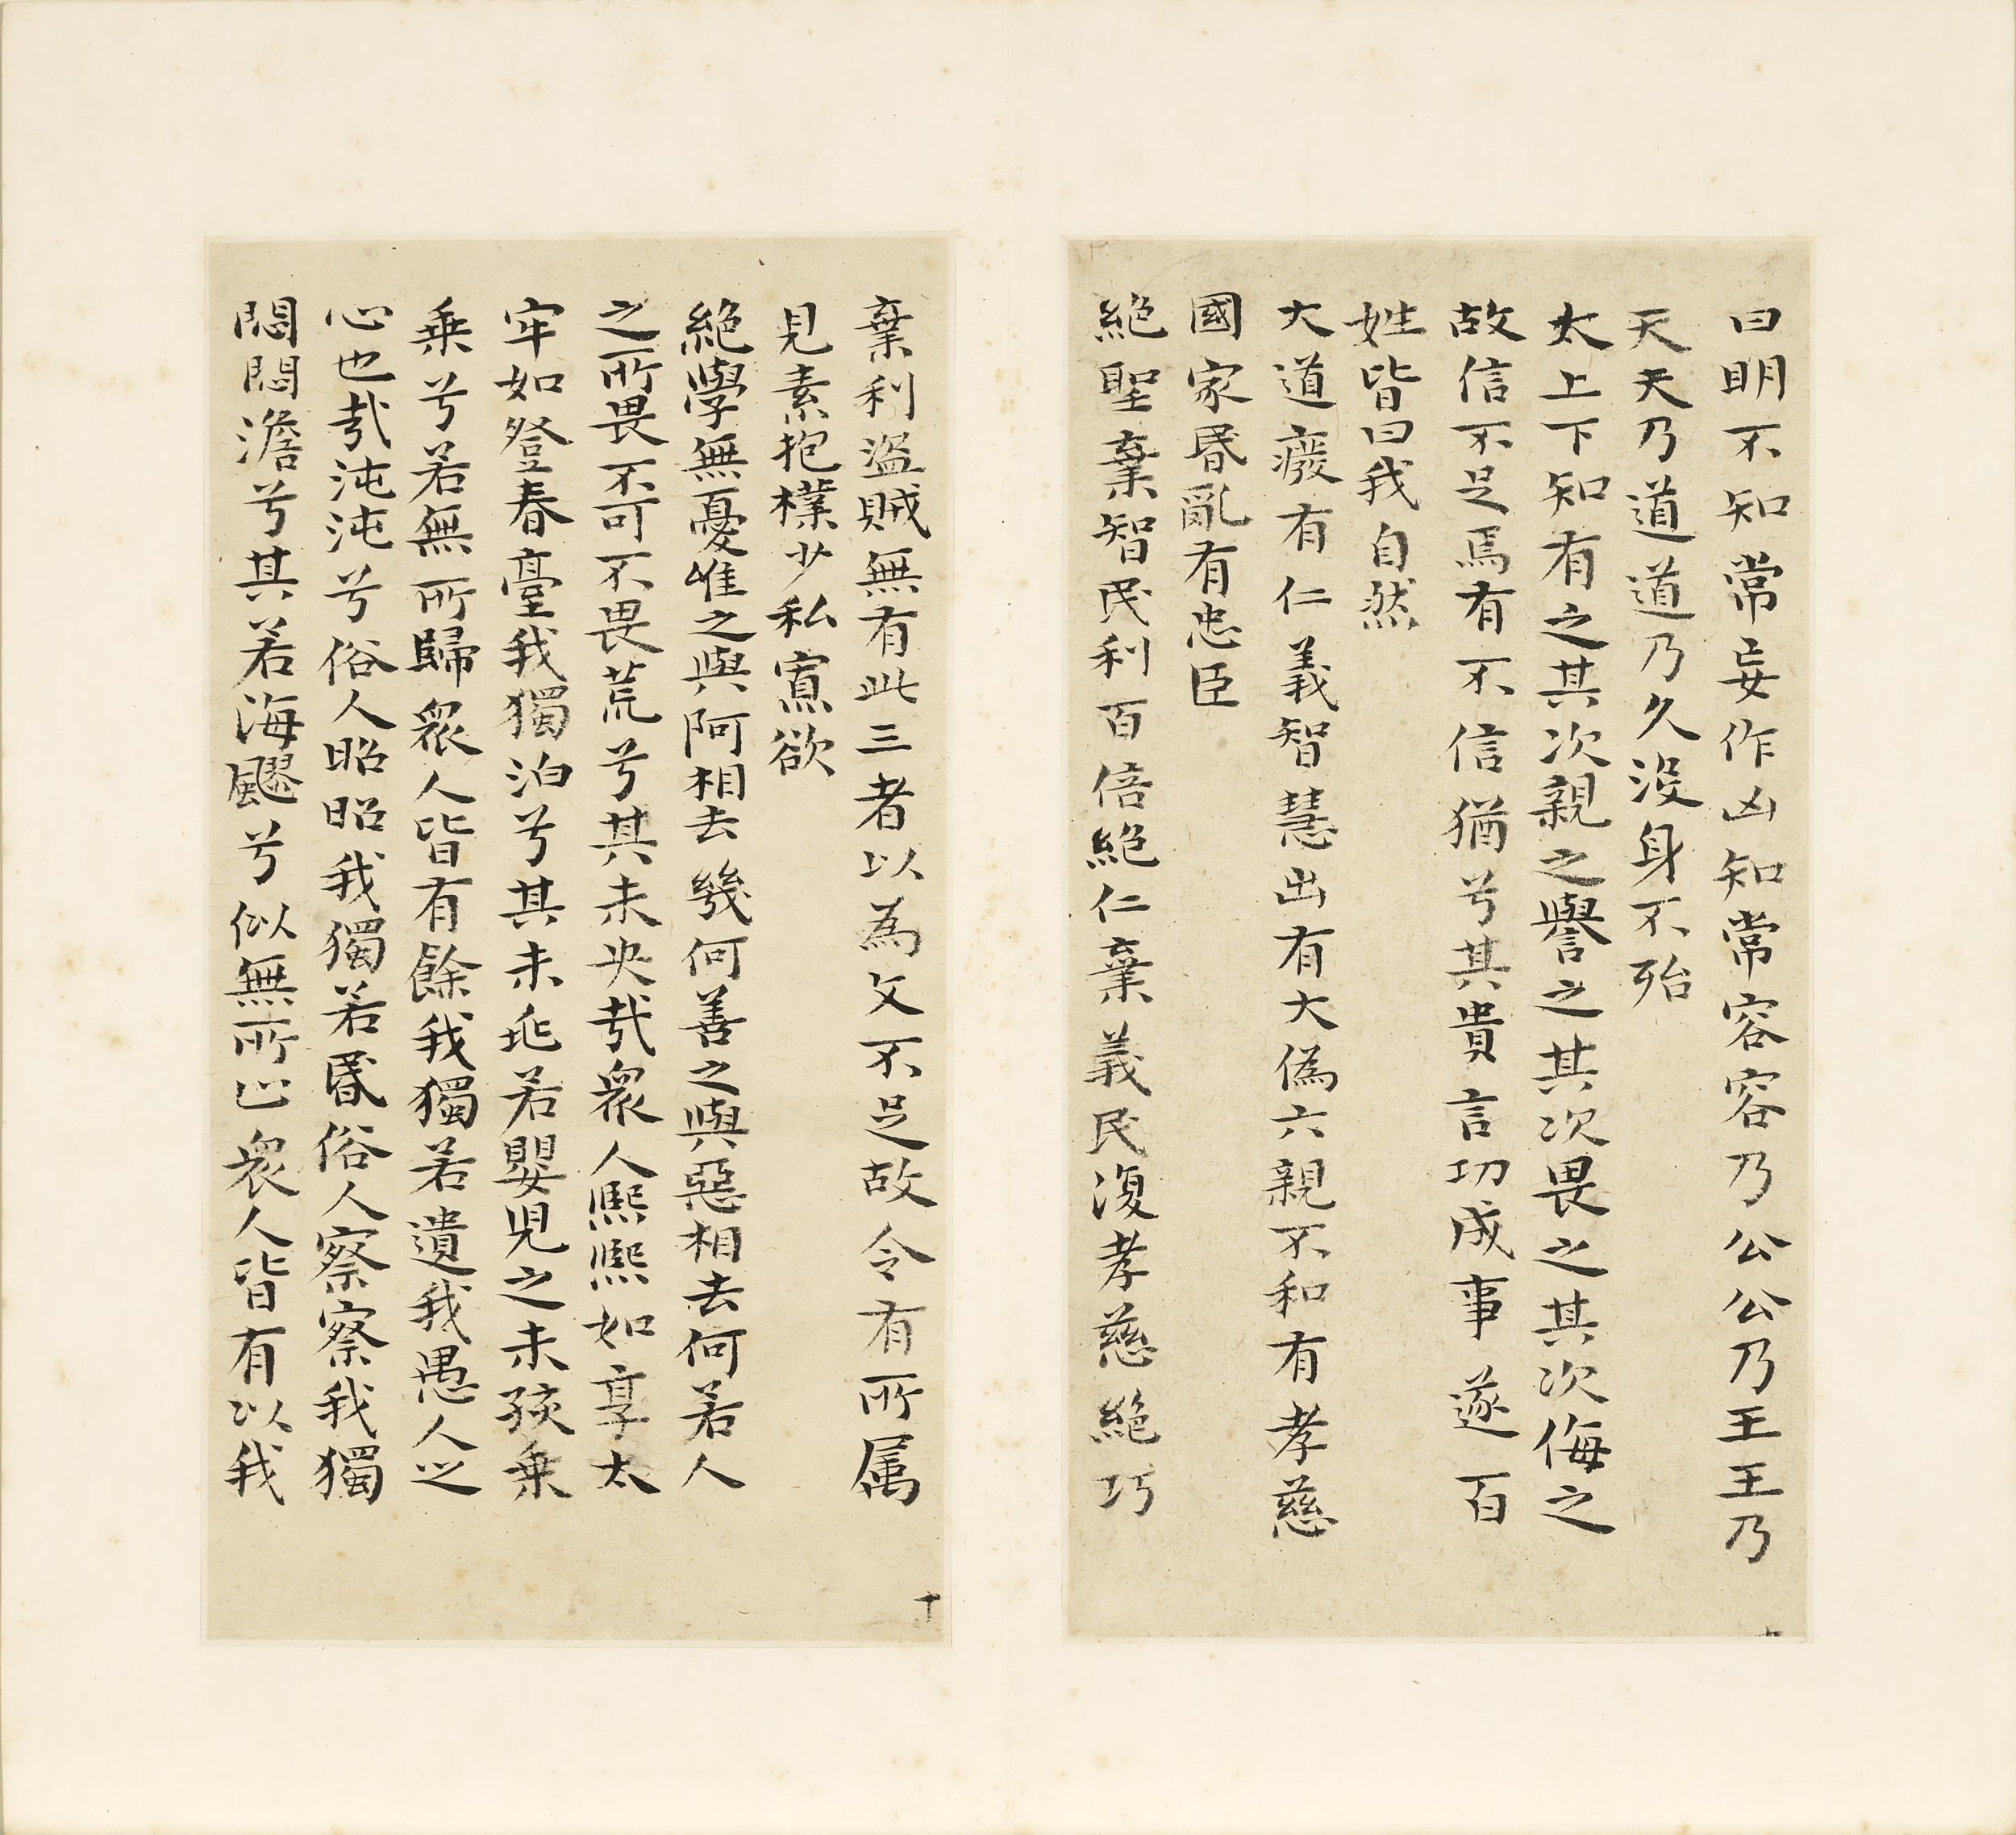 曰明不知常妄作凶知常容容乃公公乃王王乃
天天乃道道乃久沒身不殆
太上下知有之其次親之譽之其次畏之其次侮之
故信不足焉有不信猶兮其貴言功成事遂百
姓皆曰我自然
大道廢有仁義智慧出有大偽六親不和有孝慈
國家昬亂有忠臣
絕聖棄智民利百倍絕仁棄義民復孝慈絕巧
棄利盜賊無有此三者以為文不足故令有所属
見素抱樸少私寡欲
絕學無憂唯之與阿相去幾何善之與惡相去何若人
之所畏不可不畏荒兮其未央哉衆人熙熙如享太
牢如登春臺我獨泊兮其未兆若嬰兒之未孩乗
乗兮若無所歸衆人皆有餘我獨若遺我愚人之
心也哉沌沌兮俗人昭昭我獨若昬俗人察察我獨
悶悶澹兮其若海飂兮似無所止衆人皆有以我
十